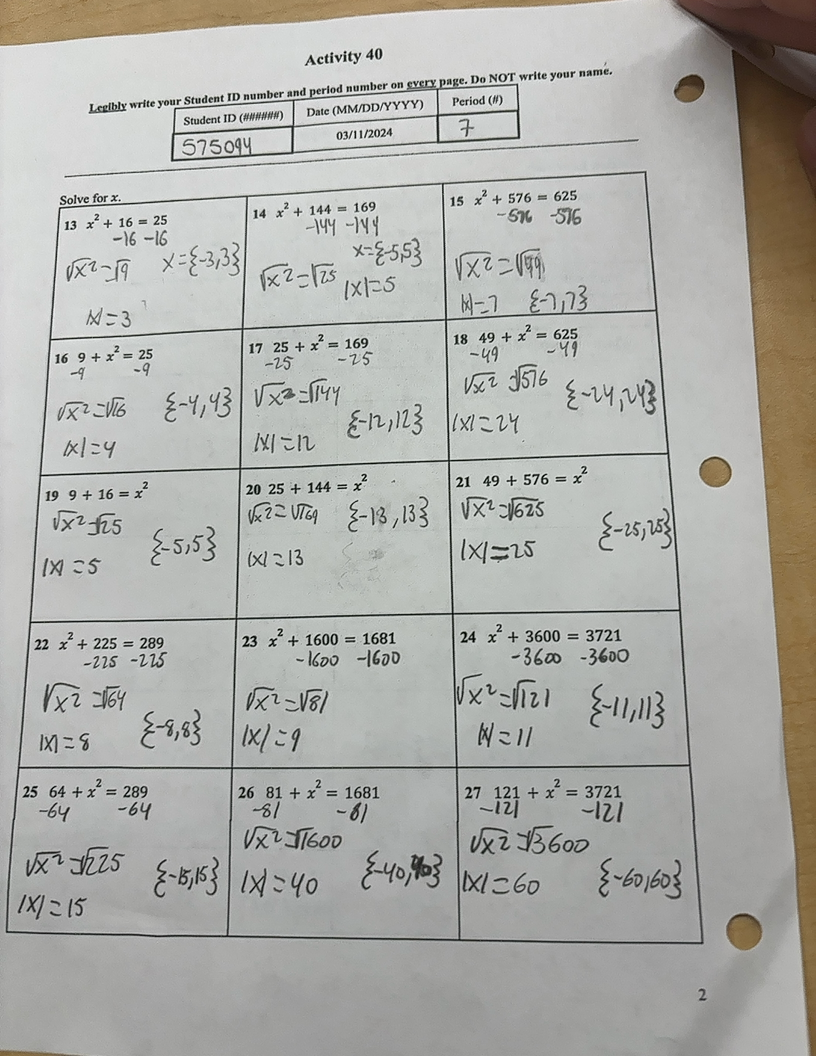 Activity 40
Legibly write your Student ID number and period number on every page. Do NOT write your name.
Student ID (######) Date (MM/DD/YYYY) Period (#)
575094 03/11/2024 7
Solve for x.
13 x² + 16 = 25
-16 -16
√x² = √9 x = {-3,3}
|x| = 3
14 x² + 144 = 169
-144 -144
x = {-5,5}
√x² = √25 |x| = 5
15 x² + 576 = 625
-576 -576
√x² = √49
|x| = 7 {-7,7}
16 9 + x² = 25
-9 -9
√x² = √16 {-4,4}
|x| = 4
17 25 + x² = 169
-25 -25
√x² = √144
{-12,12}
|x| = 12
18 49 + x² = 625
-49 -49
√x² = √576 {-24,24}
|x| = 24
19 9 + 16 = x²
√x² = √25
{-5,5}
|x| = 5
20 25 + 144 = x²
√x² = √169 {-13,13}
|x| = 13
21 49 + 576 = x²
√x² = √625
{-25,25}
|x| = 25
22 x² + 225 = 289
-225 -225
√x² = √64
|x| = 8 {-8,8}
23 x² + 1600 = 1681
-1600 -1600
√x² = √81
|x| = 9
24 x² + 3600 = 3721
-3600 -3600
√x² = √121 {-11,11}
|x| = 11
25 64 + x² = 289
-64 -64
√x² = √225 {-15,15}
|x| = 15
26 81 + x² = 1681
-81 -81
√x² = √1600
|x| = 40 {-40,40}
27 121 + x² = 3721
-121 -121
√x² = √3600
|x| = 60 {-60,60}
2